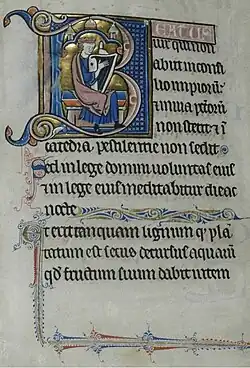 BEATUS
vir qui non
abiit in consi
lio impiorum
in via peccatorum
non stetit et in
cathedra pestilentie non sedit
Sed in lege domini voluntas eius
in lege eius meditabitur die ac
nocte
Et erit tanquam lignum quod plan
tatum est secus decursus aquarum
quod fructum suum dabit in tem